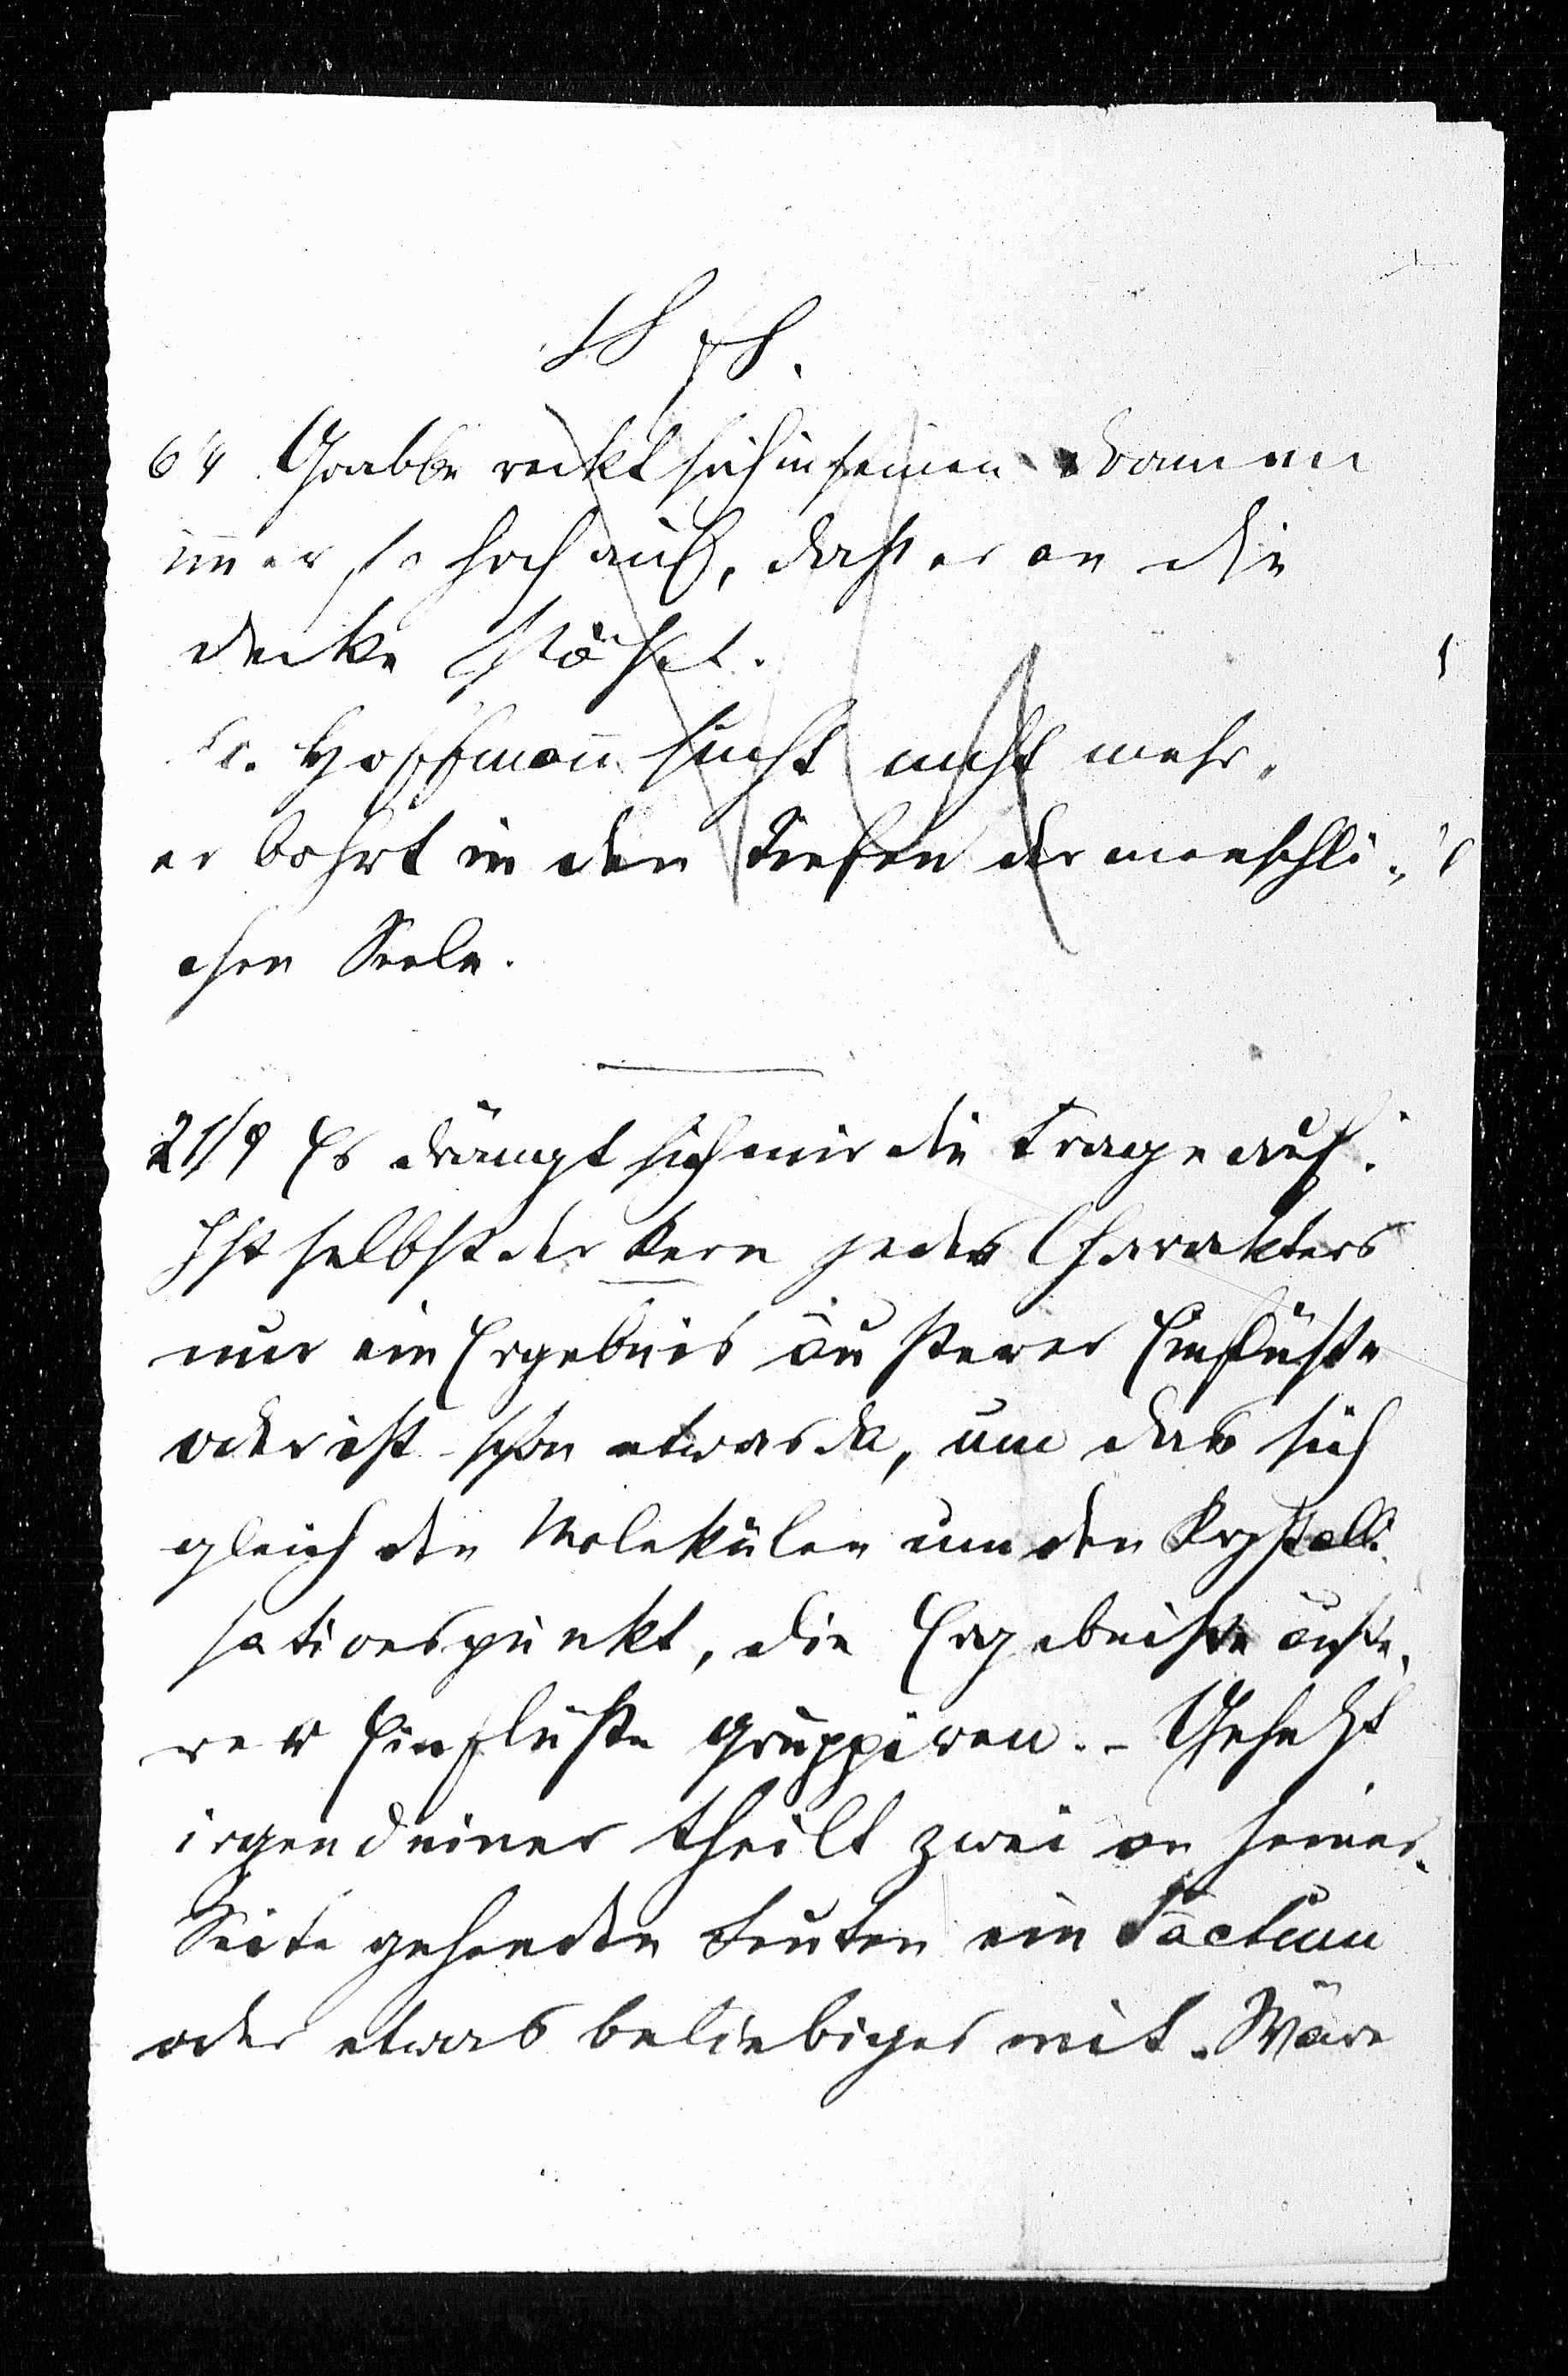 6/4 Grabbe reckt sich in seinen Dramen
im̅er so hoch auf, dass er an die
Decke stösst.
Hoffman̅ sucht nicht mehr,
er bohrt in den Tiefen der menschli-
chen Seele.
21/9 Es drängt sich mir die Frage auf.
Ist selbst der Kern jedes Charakters
nur ein Ergebnis äusserer Einflüsse
oder ist schon etwas da, um das sich
gleich den Molekülen um den Krystalli-
sationspunkt, die Ergebnisse äusse-
rer Einflüsse gruppiren. - Gesetzt
irgendeiner theilt zwei an seiner
Seite gehenden Leuten ein Factum
oder etwas beliebiges mit. Wäre